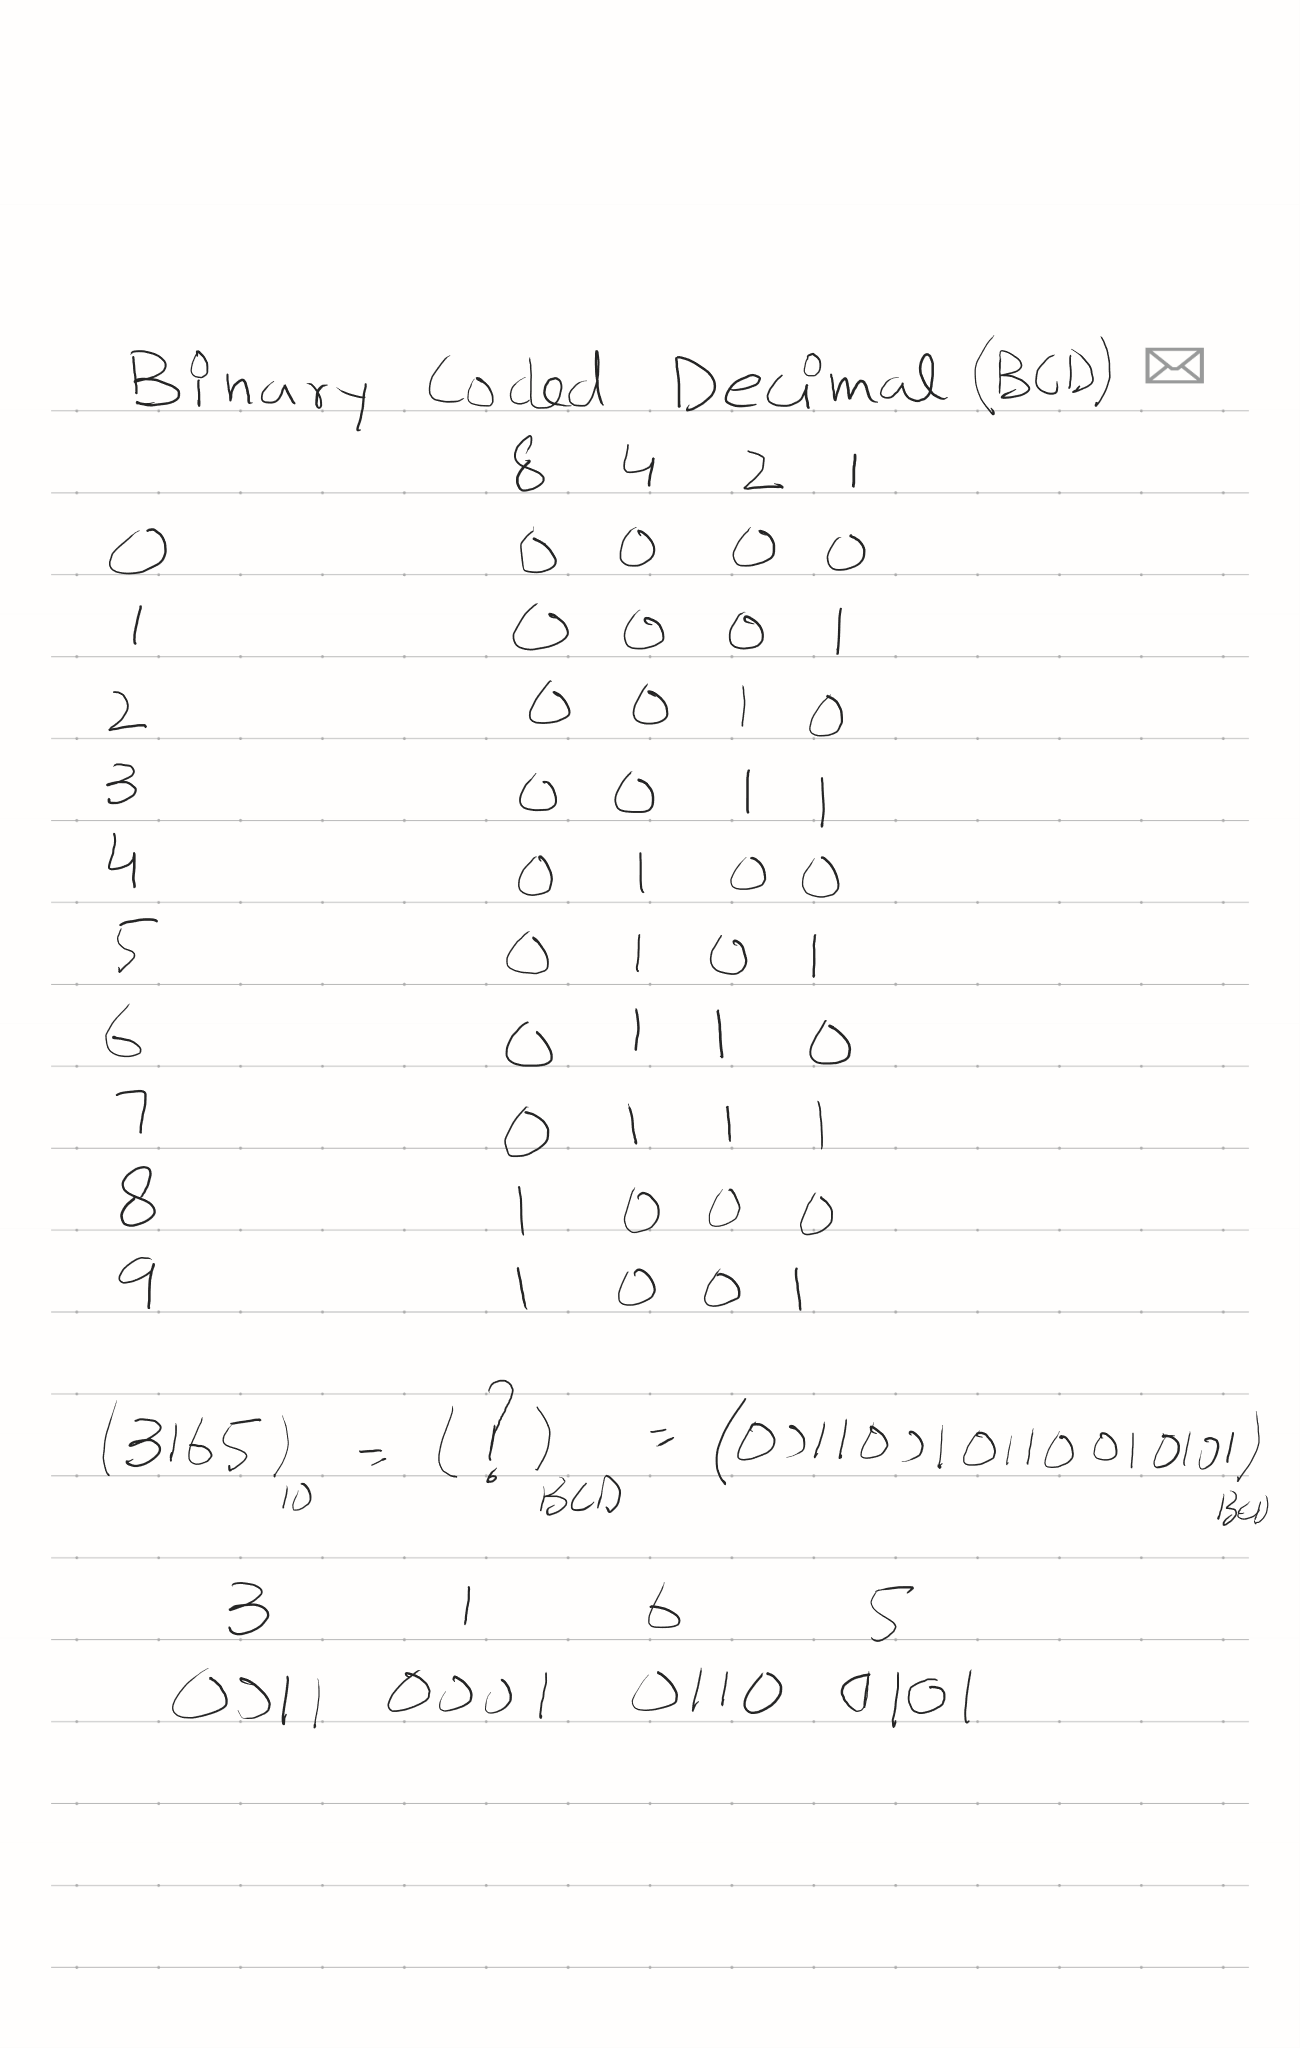 Binary Coded Decimal (BCD)
8 4 2 1
0 0 0 0 0
1 0 0 0 1
2 0 0 1 0
3 0 0 1 1
4 0 1 0 0
5 0 1 0 1
6 0 1 1 0
7 0 1 1 1
8 1 0 0 0
9 1 0 0 1
(3165)10 = (?)BCD = (00110010110010101)BCD
3 1 6 5
0011 0001 0110 0101